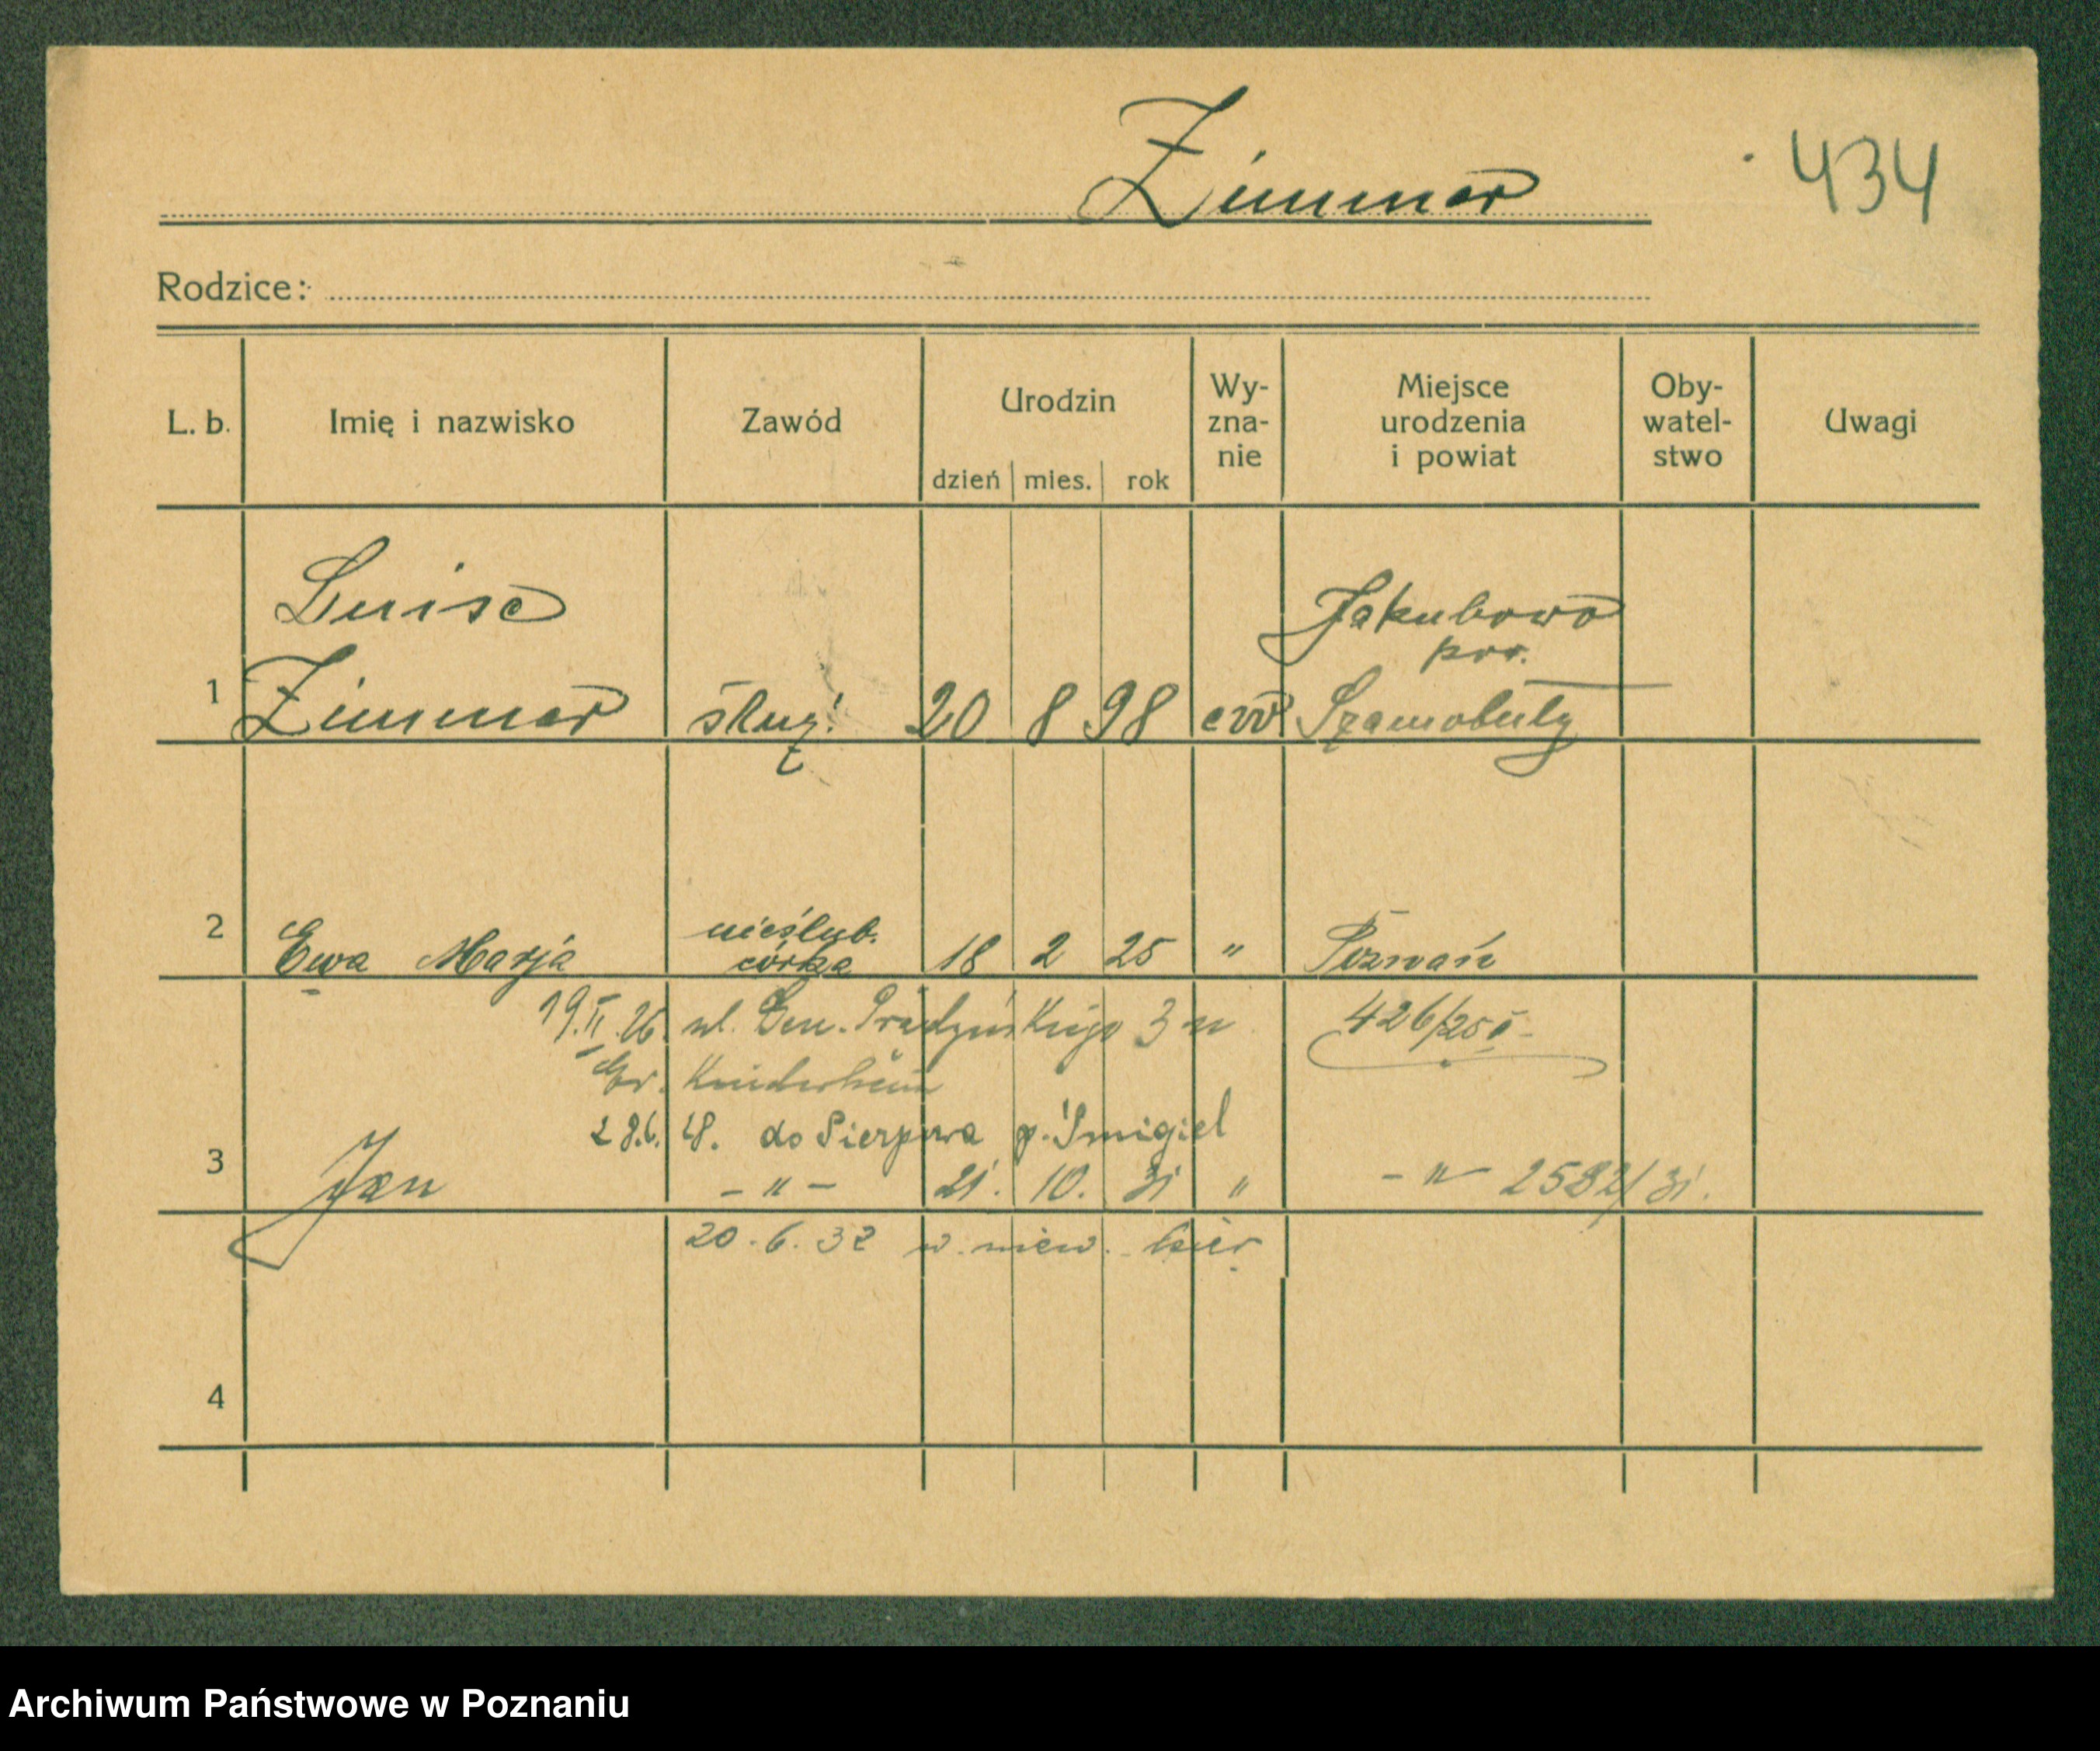 Zimmer
434
Rodzice:
L. b.
Imię i nazwisko
Zawód
Urodzin
dzień
mies.
rok
Wy-
zna-
nie
Miejsce
urodzenia
i powiat
Oby-
watel-
stwo
Uwagi
1
Luise
Zimmer
służ.
20 8 98
ew
Jakubowo
pow.
Szamotuły
2
Ewa Marja
nieślub.
córka
18 2 25
"
Poznań
19.II.26. ul. Gen. Prądzyńskiego 3 u
426/25 I
Kinderheim
28.6. 28. do Sierpowa p. Śmigiel
3
Jan
- " -
21. 10. 31
"
- " - 2582/31.
20.6.32 w. niew. kier
4
Archiwum Państwowe w Poznaniu